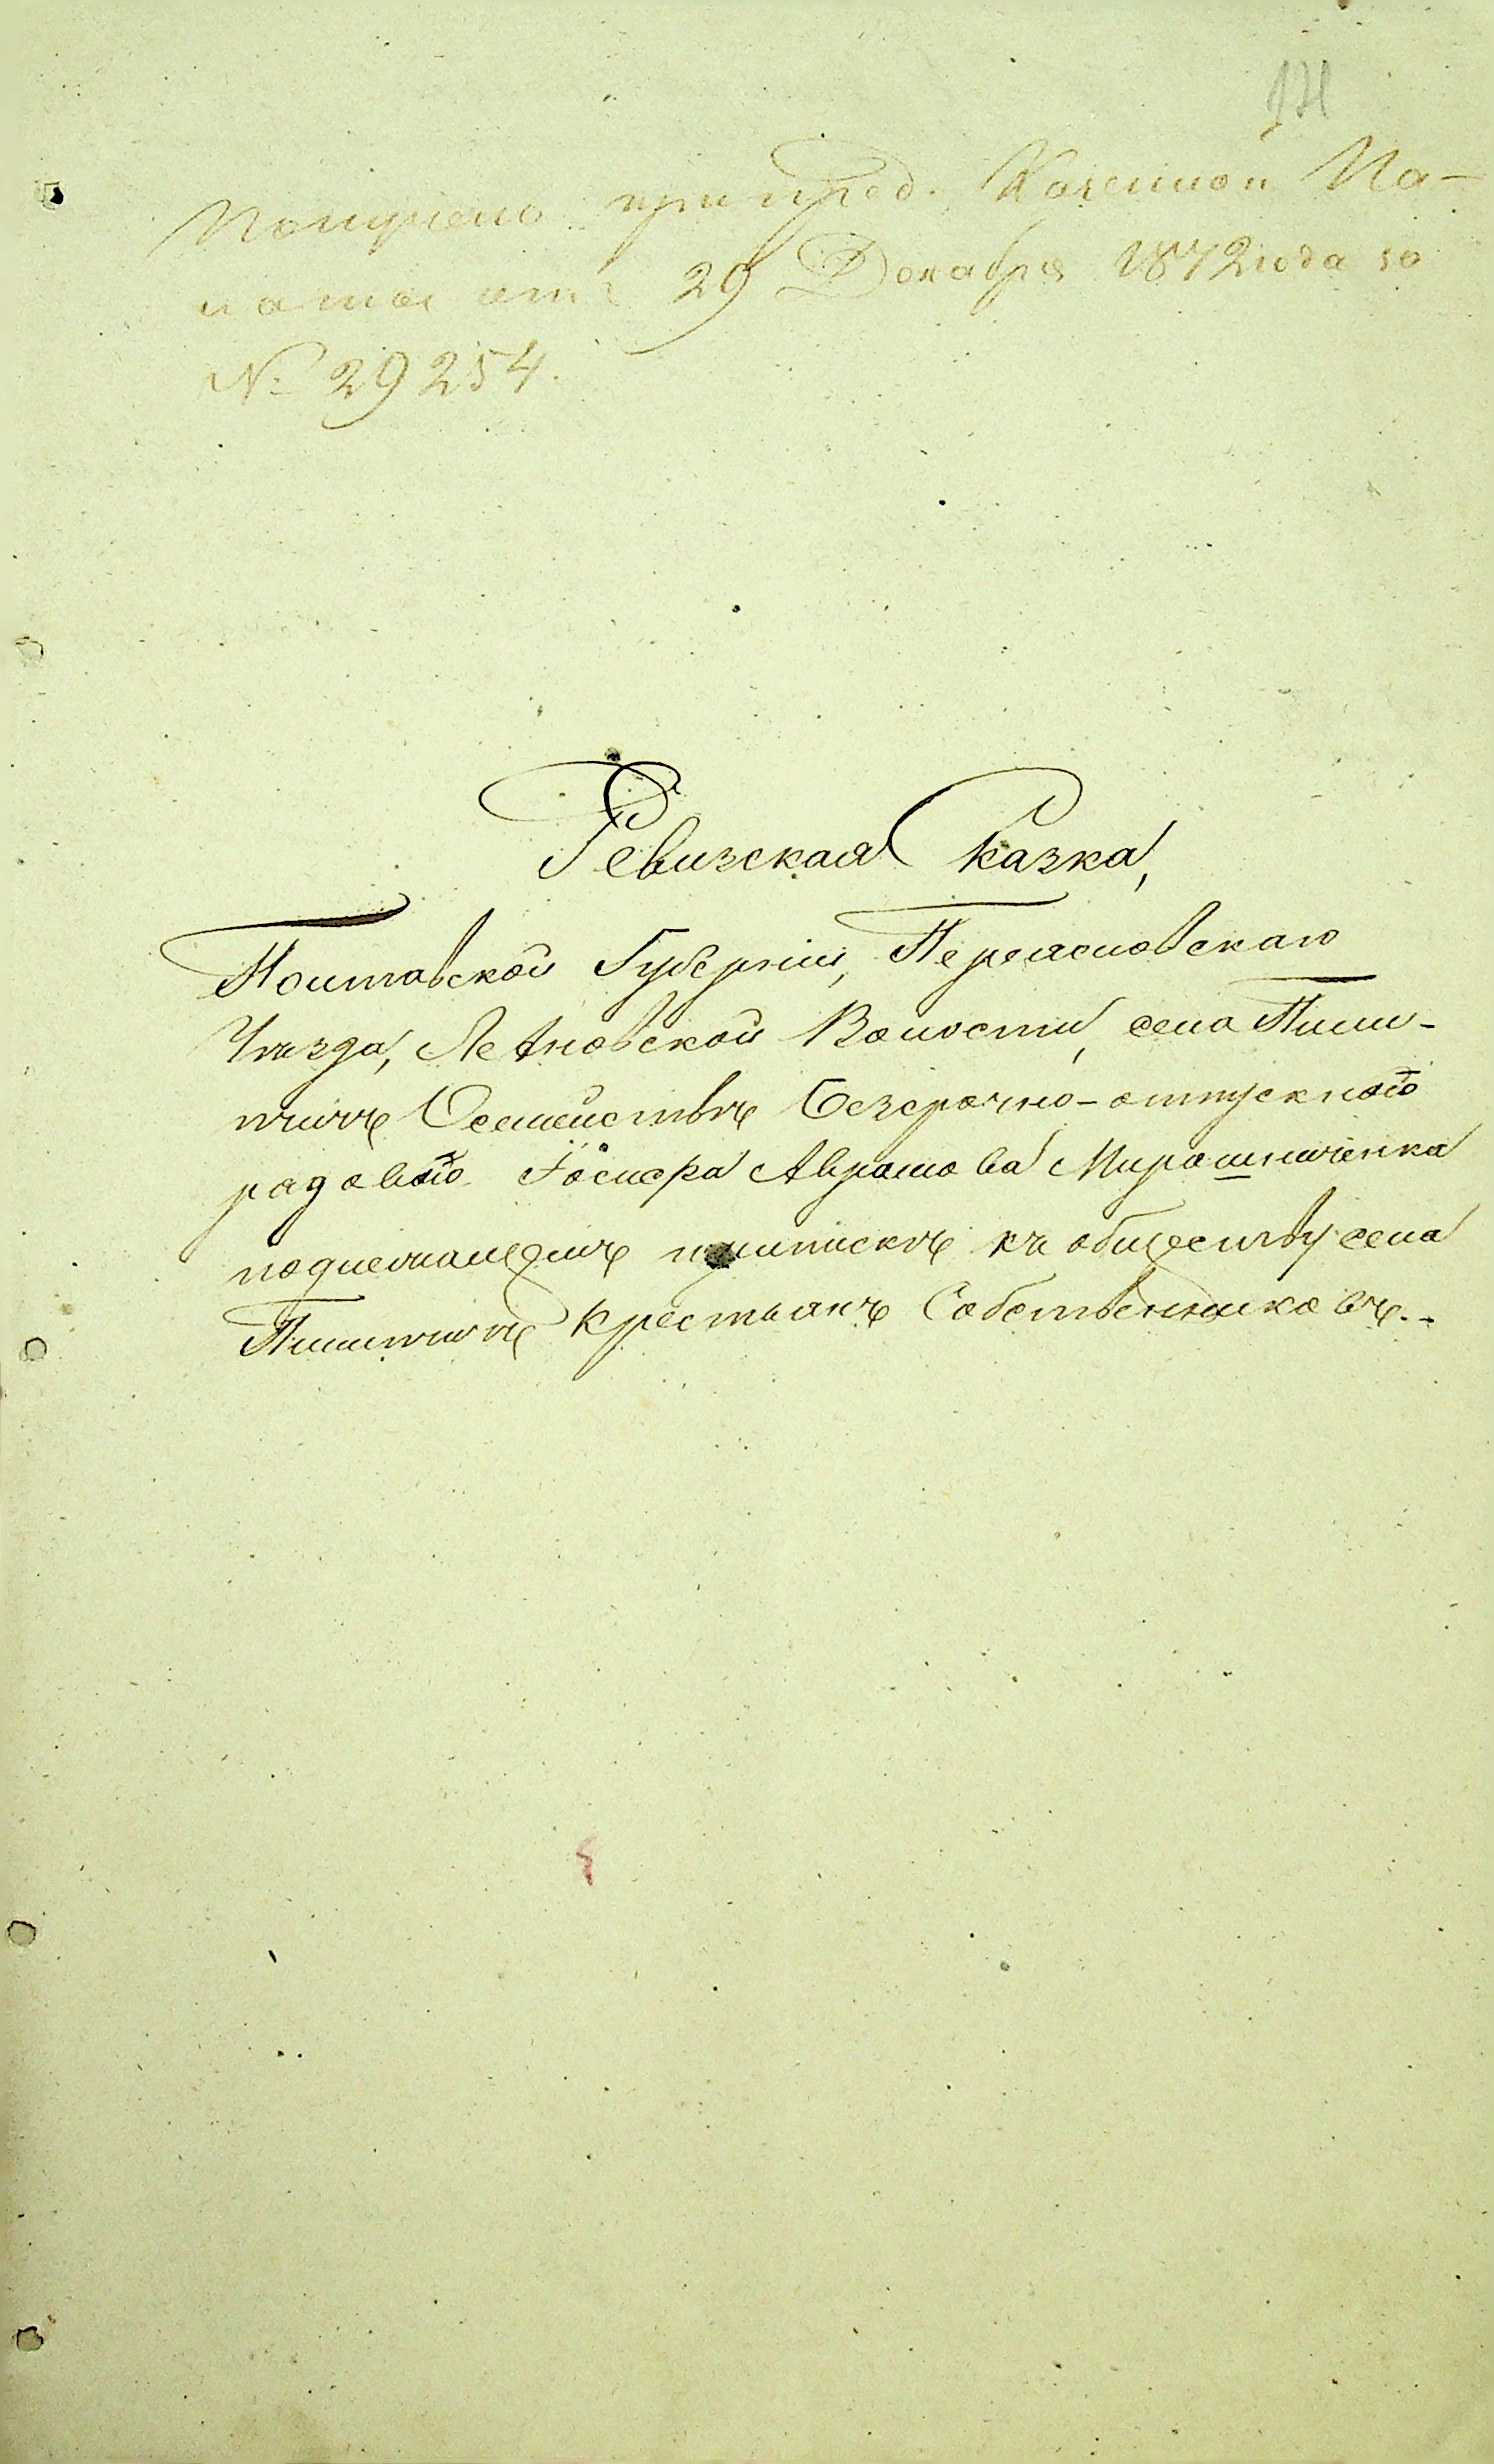 Получено при пред. Казенной Па-
латы отъ 29 Декабря 1872 года за
№ 29254.
Ревизская Сказка,
Полтавской Губерніи, Переясловскаго
Уѣзда, Леляковской Волости, села Пили-
пчичъ Семействъ безсрочно-отпускного
рядового Іосифа Аврамова Мирошниченка
подлежащемъ припискѣ къ обществу села
Пилипчичъ крестьянъ Собственниковъ.